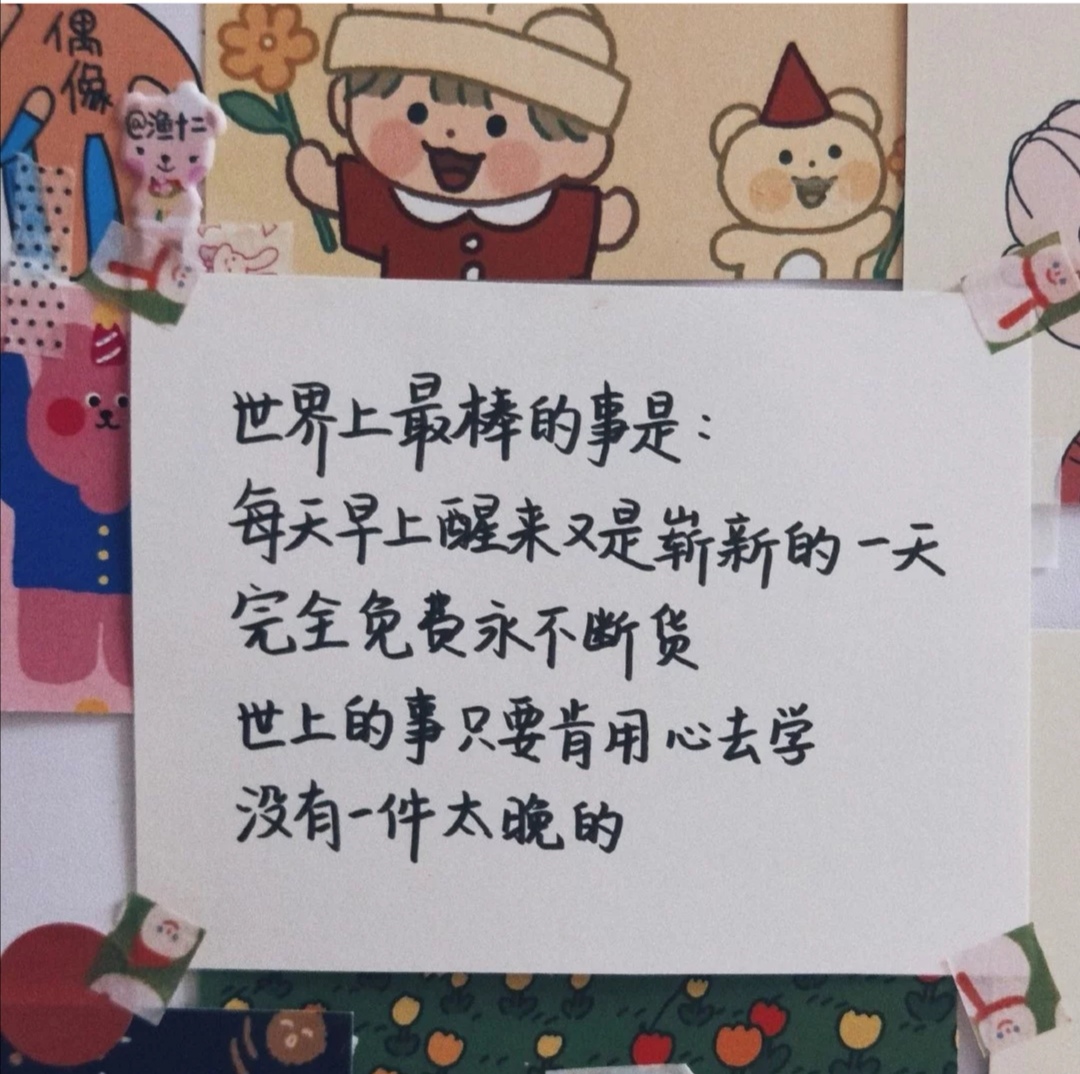 偶
像
@渔十二
世界上最棒的事是：
每天早上醒来又是崭新的一天
完全免费永不断货
世上的事只要肯用心去学
没有一件太晚的